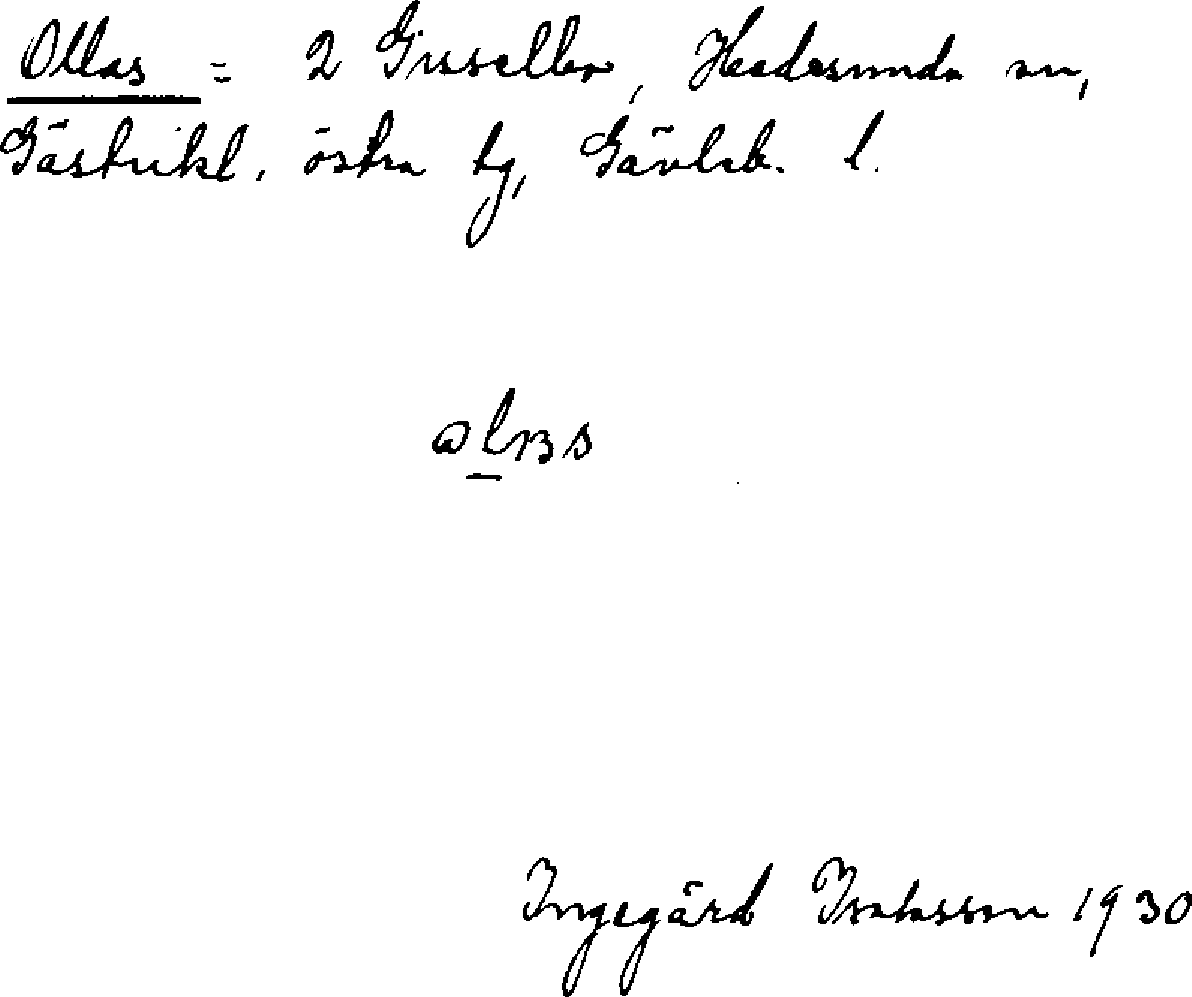 Ollas = 2 Grusellbo, Hedesunda sn,
Gästrikl. östra tg, Gävleb. l.
Ingegärd Isaksson 1930